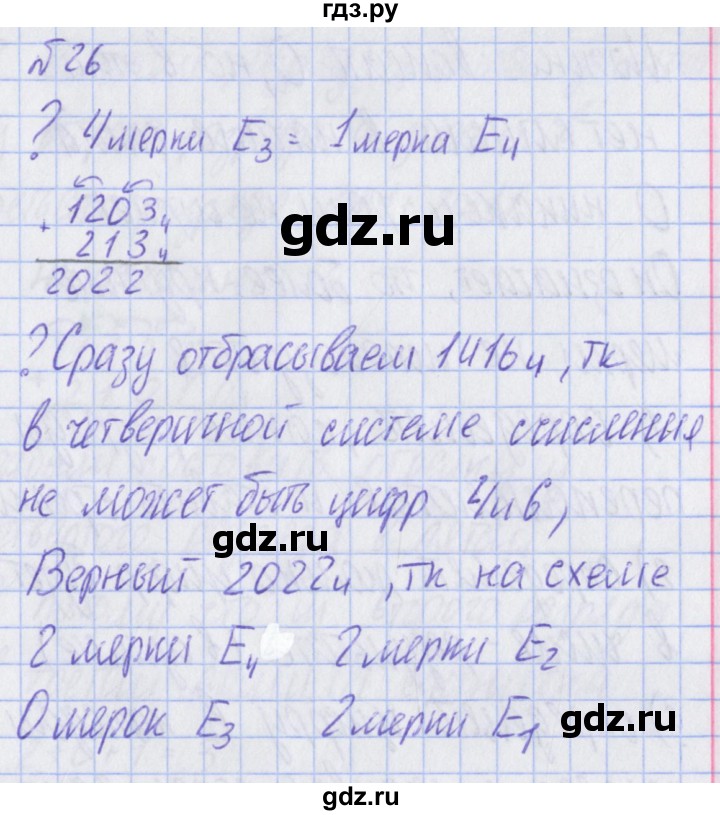 гдз.ру
№26
? 4 мерки Е3 = 1 мерка Е4
gdz.ru
1203₄
+ 213₄
2022
? Сразу отбрасываем 1416₄, тк
в четверичной системе счисления
не может быть цифр 4 и 6,
gdz.ru
Верный 2022₄, тк на схеме
2 мерки Е4 2 мерки Е2
0 мерок Е3 2 мерки Е1
gdz.ru
gdz.ru